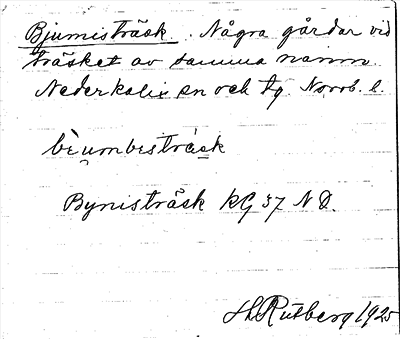 Bjumisträsk. Några gårdar vid
träsket av samma namn.
Nederkalix sn och tg. Norrb. l.
bèumbestràsk
Bynisträsk KG 37 N D.
H Rutberg 1925